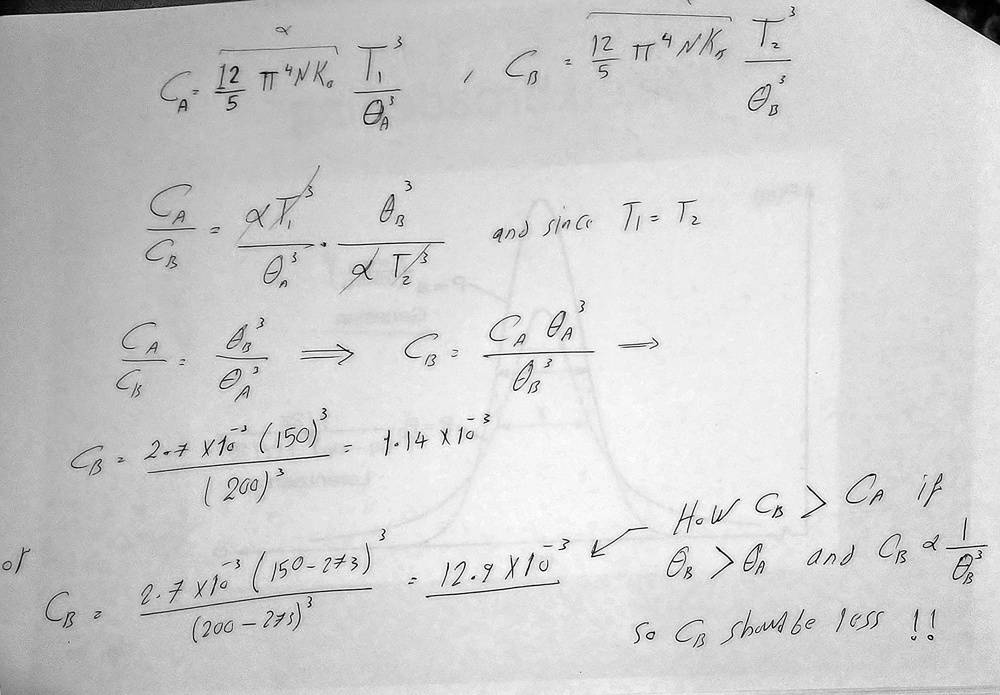 α
C_A = 12/5 π⁴NK₀ T₁³/θ_A³ , C_B = 12/5 π⁴NK T₂³/θ_B³
C_A/C_B = αT₁³/θ_A³ · θ_B³/αT₂³ and since T₁ = T₂
C_A/C_B = θ_B³/θ_A³ ⟹ C_B = C_A θ_A³/θ_B³ ⟹
C_B = 2.7 × 10⁻³ (150)³/(200)³ = 1.14 × 10⁻³
or C_B = 2.7 × 10⁻³ (150-273)³/(200-273)³ = 12.9 × 10⁻³
How C_B > C_A if
θ_B > θ_A and C_B α 1/θ_B³
so C_B should be less !!